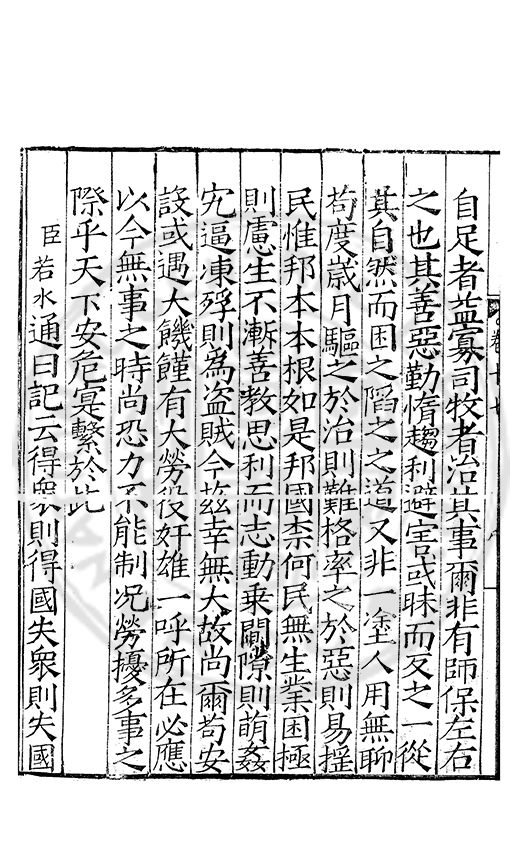 自足者益寡司牧者治其事爾非有師保左右
之也其善惡勤惰趨利避害或昧而反之一從
其自然而困之陷之之道又非一塗人用無聊
苟度歲月驅之於治則難格率之於惡則易搖
民惟邦本本根如是邦國柰何民無生業困極
則慮生不漸善教思利而志動乗闚隙則萌姦
宄逼凍殍則為盗賊今茲幸無大故尚爾苟安
設或遇大饑饉有大勞役奸雄一呼所在必應
以今無事之時尚恐力不能制况勞擾多事之
際乎天下安危寔繫於此
臣若水通曰記云得衆則得國失衆則失國
卷十七